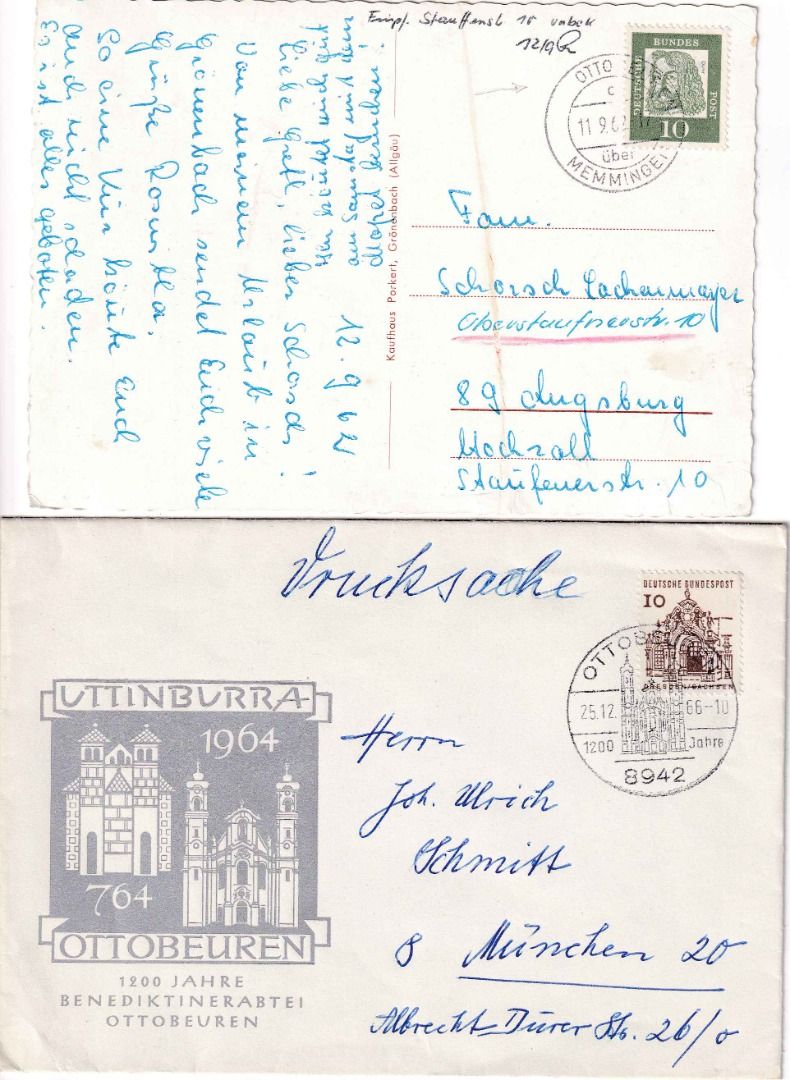 Empf. Stauffenstr 10 unbek
12/9
DEUTSCHE BUNDES POST
10
OTTO
c
11.9.62
über
MEMMINGEN
12.9.62
Liebe Gretl, lieber Schorsch!
Von meinem Urlaub in
Grönenbach sendet Euch viele
Grüße Rosmilla.
So eine Kur könnte Euch
auch nicht schaden.
Es ist alles geboten.
am Samstag mit dem
Moped besuchen!
Kaufhaus Porkert, Grönenbach (Allgäu)
Fam.
Schorsch Lachenmayer
Oberstaufnerstr. 10
89 Augsburg
Hochzoll
Staufenerstr. 10
Drucksache
DEUTSCHE BUNDESPOST
10
DRESDEN/SACHSEN
OTTOBE
25.12. 66-10
1200 Jahre
8942
UTTINBURRA
1964
764
OTTOBEUREN
1200 JAHRE
BENEDIKTINERABTEI
OTTOBEUREN
Herrn
Joh. Ulrich
Schmitt
8 München 20
Albrecht-Dürer Str. 26/0